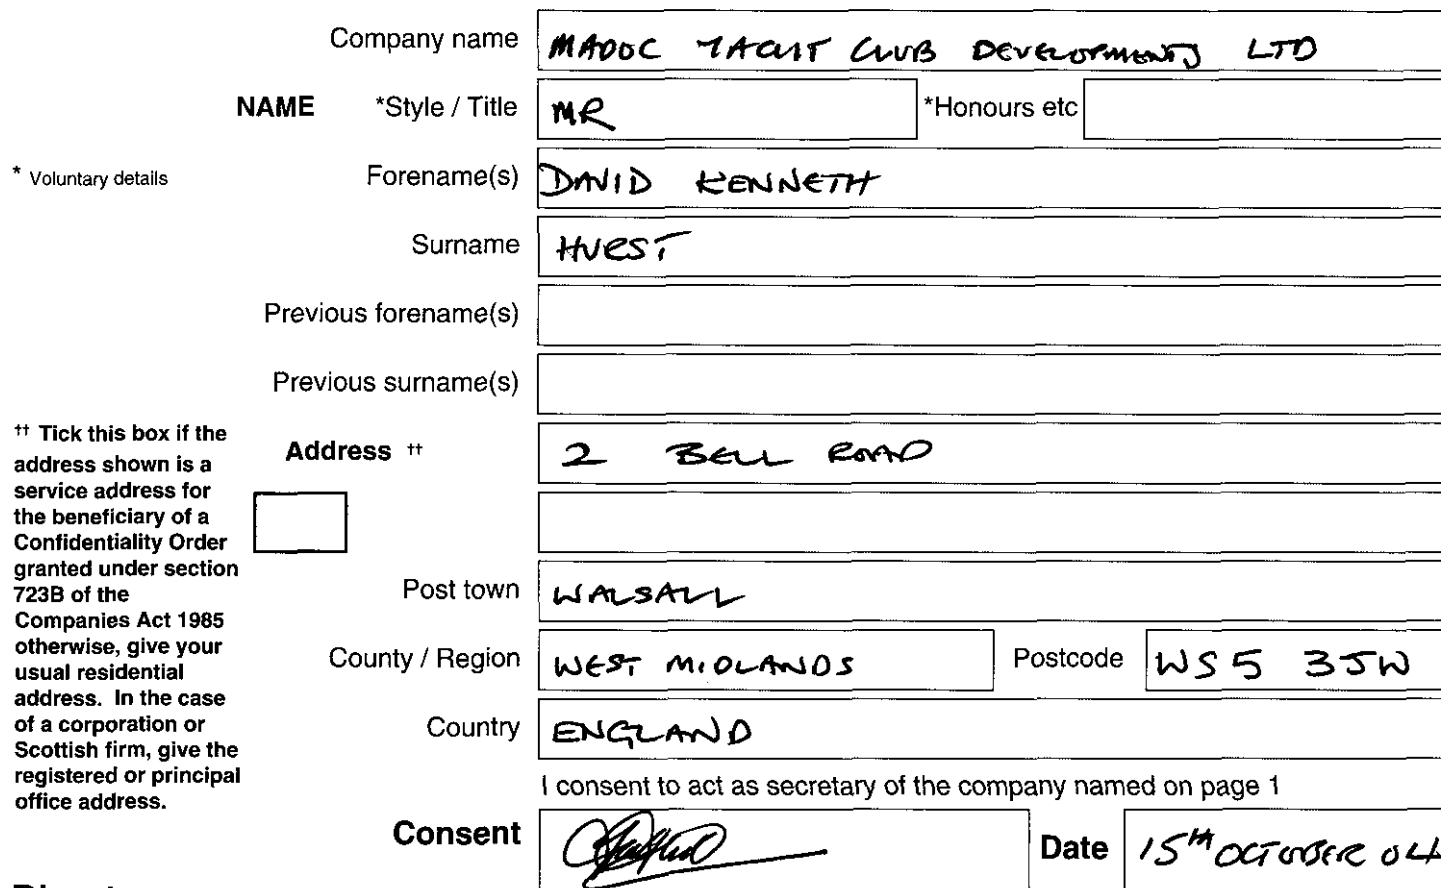 Company name MADOC YACHT CLUB DEVELOPMENTS LTD
NAME *Style / Title MR *Honours etc
* Voluntary details Forename(s) DAVID KENNETH
Surname HURST
Previous forename(s)
Previous surname(s)
†† Tick this box if the
address shown is a
service address for
the beneficiary of a
Confidentiality Order
granted under section
723B of the
Companies Act 1985
otherwise, give your
usual residential
address. In the case
of a corporation or
Scottish firm, give the
registered or principal
office address.
Address †† 2 BELL ROAD
Post town WALSALL
County / Region WEST MIDLANDS Postcode WS5 3JW
Country ENGLAND
I consent to act as secretary of the company named on page 1
Consent Date 15TH OCTOBER 04